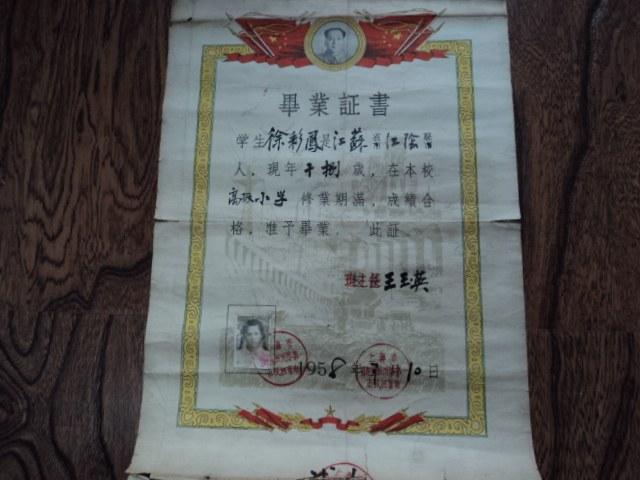 畢業証書
学生徐彩鳳是江蘇省市江陰縣市
人，現年十捌歲，在本校
高級小学修業期滿，成績合
格，准予畢業，此証
班主任王玉英
1958年 月10日
上海市